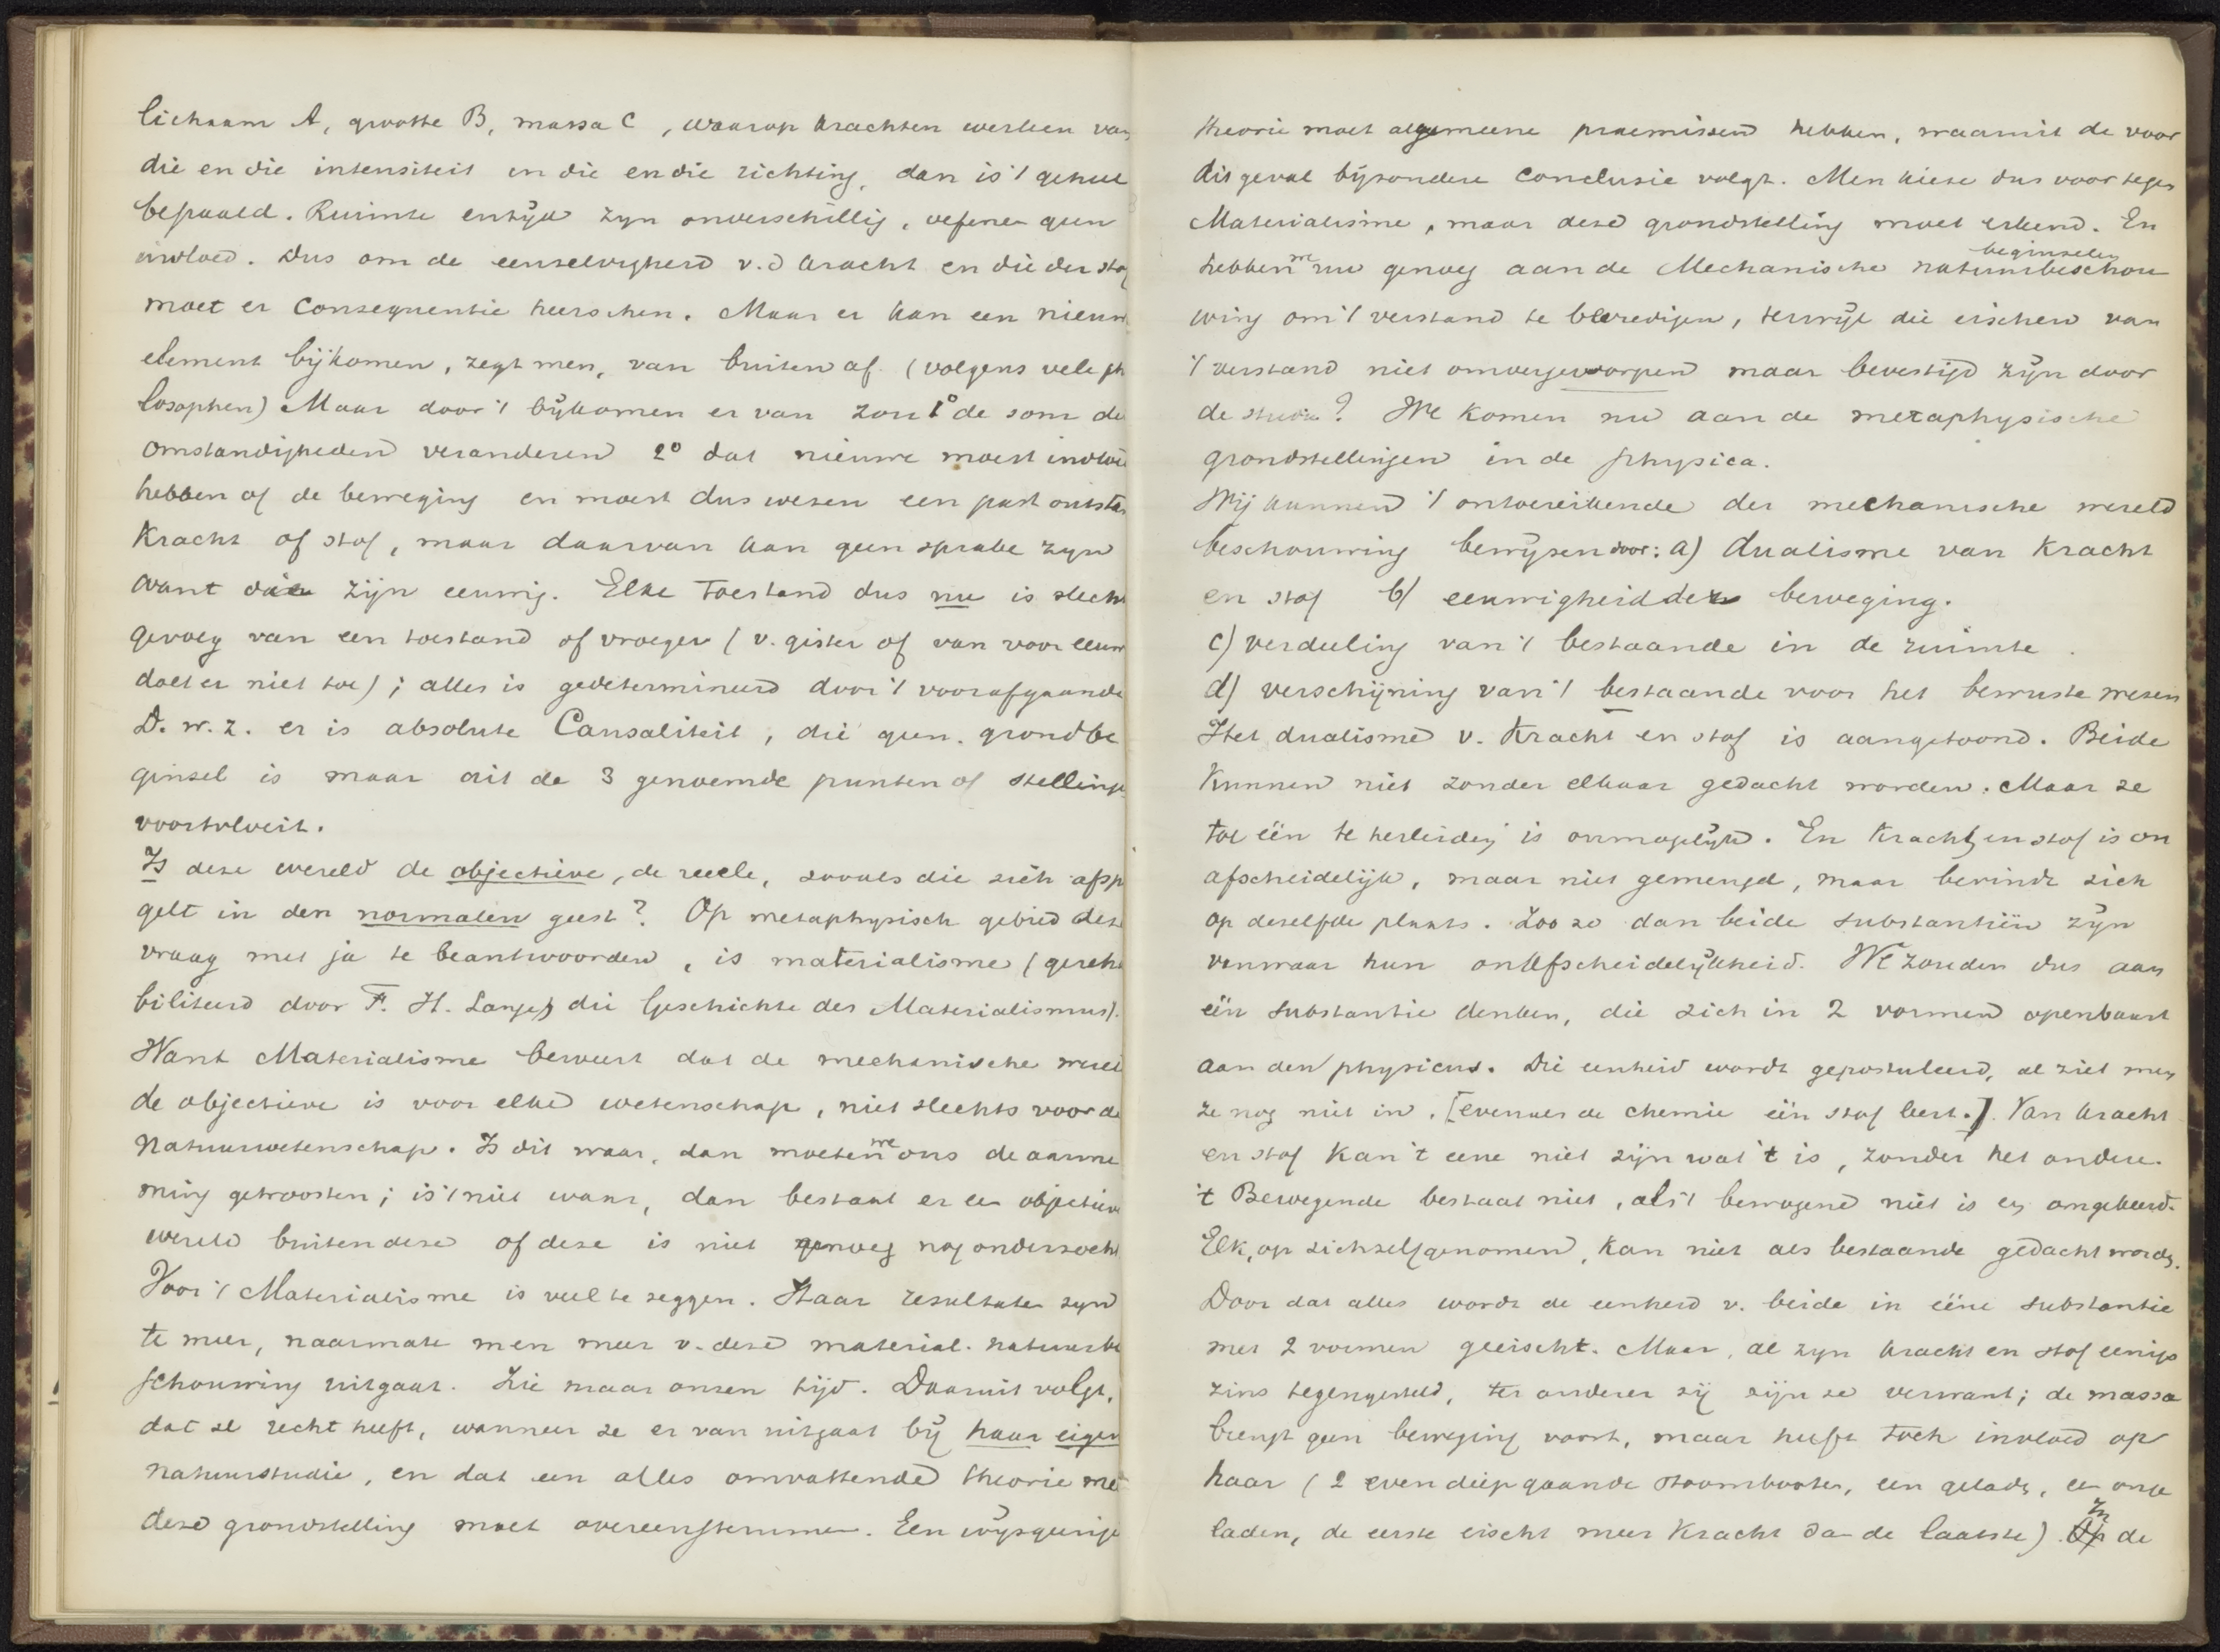 lichaam A, grootte B, massa C, waarop krachten werken van
die en die intensiteit in die en die richting, dan is 't geheel
bepaald. Ruimte en tijd zyn onverschillig, oefenen geen
invloed. Dus om de eenzelvigheid v. d kracht en die der stof
moet er consequentie heerschen. Maar er kan een nieuw
element bijkomen, zegt men, van buiten af. (volgens vele ph
losophen) Maar door 't bijkomen er van zou 1° de som de
omstandigheden veranderen 2° dat nieuwe moest invloe
hebben of de beweging en moest dus wezen een past ontsta
Kracht of stof, maar daarvan kan geen sprake zyn
want die zijn eeuwig. Elke toestand dus nu is slech
gevolg van een toestand of vroeger (v. gister of van voor eeuw
doet er niet toe); alles is gedetermineerd door 't voorafgaande
D. w. z. er is absolute Causaliteit, die geen grondbe
ginsel is maar uit de 3 genoemde punten of stellinge
voortvloeit.
Is deze wereld de objectieve, de reeele, zooals die zich afsp
gelt in den normalen geest? Op metaphysisch gebied deze
vraag met ja te beantwoorden, is materialisme (gereha
biliteerd door F. H. Lange, die Geschichte des Materialismus).
Want Materialisme beweert dat de mechanische werel
de objectieve is voor elke wetenschap, niet slechts voor de
Natuurwetenschap. Is dit waar, dan moeten we ons de aanne
ming getroosten; is 't niet waar, dan bestaat er een objectieve
wereld buiten deze of deze is niet genoeg nog onderzocht
Voor 't Materialisme is veel te zeggen. Haar resultaten zyn
te meer, naarmate men meer v. deze material. natuurbe
schouwing uitgaat. Zie maar onzen tijd. Daaruit volgt,
dat ze recht heeft, wanneer ze er van uitgaat bij haar eigen
natuurstudie, en dat een alles omvattende theorie me
deze grondstelling moet overeenstemmen. Een wysgeerige
theorie moet algemeene praemissen hebben, waaruit de voor
dit geval bijzondere conclusie volgt. Men kieze dus voor tegen
Materialisme, maar deze grondstelling moet erkend. En
hebben we nu genoeg aan de Mechanische beginselen natuurbeschou
wing om 't verstand te bevredigen, terwijl die eischen van
't verstand niet omvergeworpen maar bevestigd zijn door
de studie? We komen nu aan de metaphysische
grondstellingen in de physica.
Wij kunnen 't ontoereikende der mechanische wereld
beschouwing bewijzen door: a) dualisme van Kracht
en stof b) eeuwigheid der beweging.
c) verdeeling van 't bestaande in de ruimte.
d) verschijning van 't bestaande voor het bewuste wezen
Het dualisme v. Kracht en stof is aangetoond. Beide
Kunnen niet zonder elkaar gedacht worden. Maar ze
tot één te herleiden is onmogelijk. En Kracht en stof is on
afscheidelijk, maar niet gemengd, maar bevindt zich
op dezelfde plaats. Zoo zo dan beide substantiën zijn
vanwaar hun onafscheidelijkheid. We zouden dus aan
één substantie denken, die zich in 2 vormen openbaart
aan den physicus. Die eenheid wordt gepostuleerd, al ziet men
ze nog niet in. [evenals de chemie één stof                ]. Van kracht
en stof Kan 't eene niet zijn wat 't is, zonder het andere.
't Bewegende bestaat niet, als 't bewogene niet is en omgekeerd.
Elk, op zichzelf genomen, kan niet als bestaande gedacht worden.
Door dat alles wordt de eenheid v. beide in ééne substantie
met 2 vormen geeischt. Maar, al zyn kracht en stof eeniger
zins tegengesteld, ter anderer zij zijn ze verwant; de massa
brengt geen beweging voort, maar heeft toch invloed op
haar (2 even diep gaande stoombooten, een geladen, een onge
laden, de eerste eischt meer Kracht dan de laatste). In de